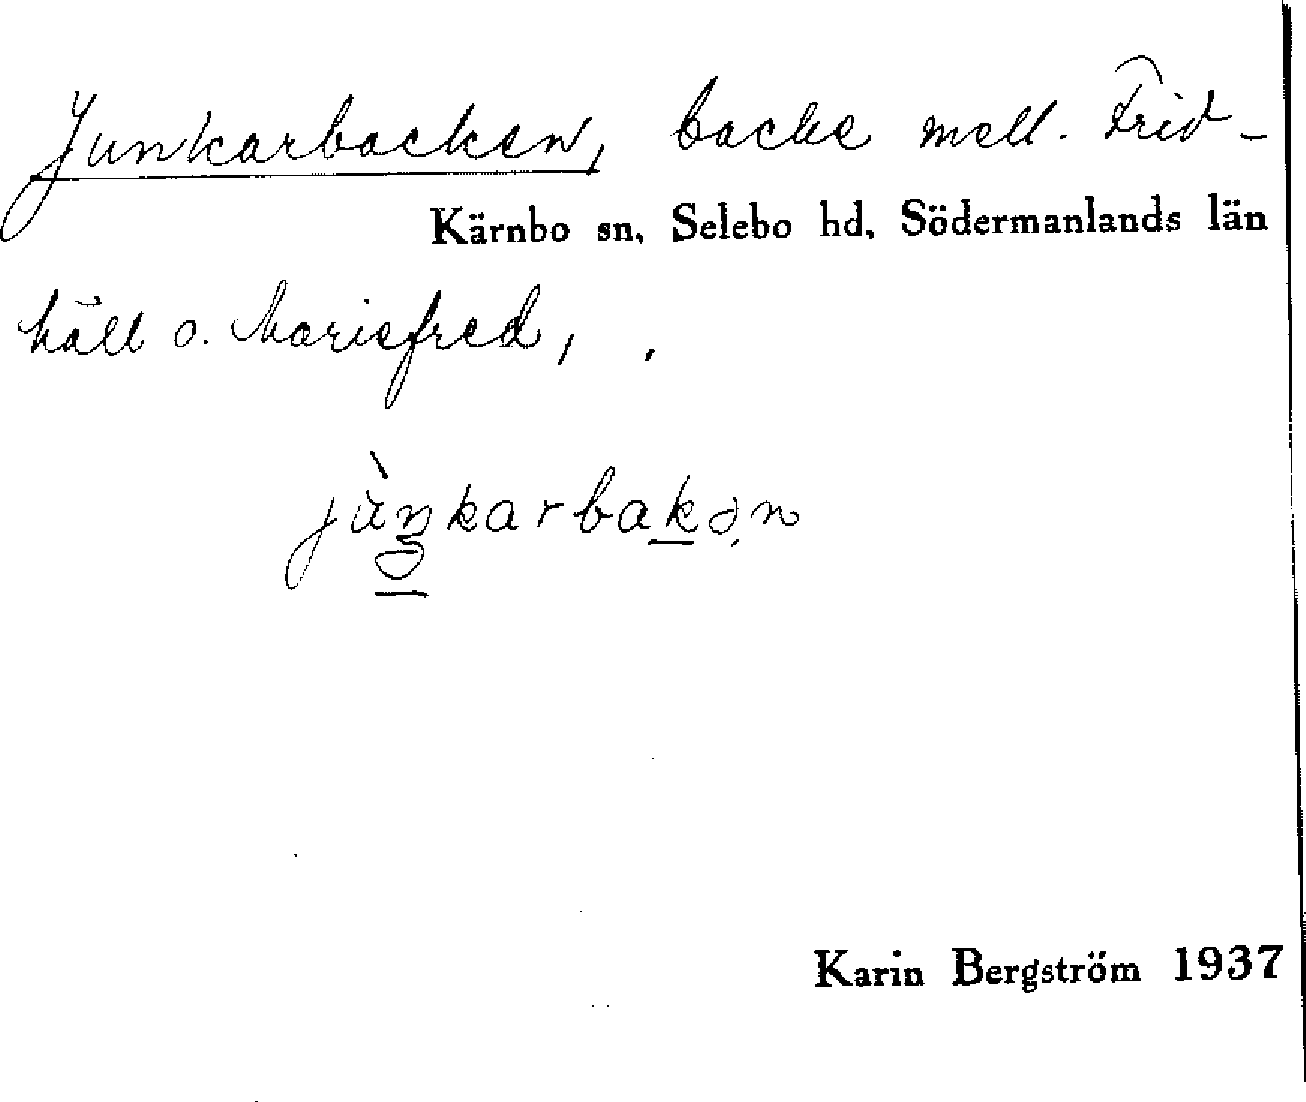 Junkarbacken, backe mell. Frid-
Kärnbo sn, Selebo hd, Södermanlands län
häll o. Mariefred, .
jùŋkarbakən
Karin Bergström 1937